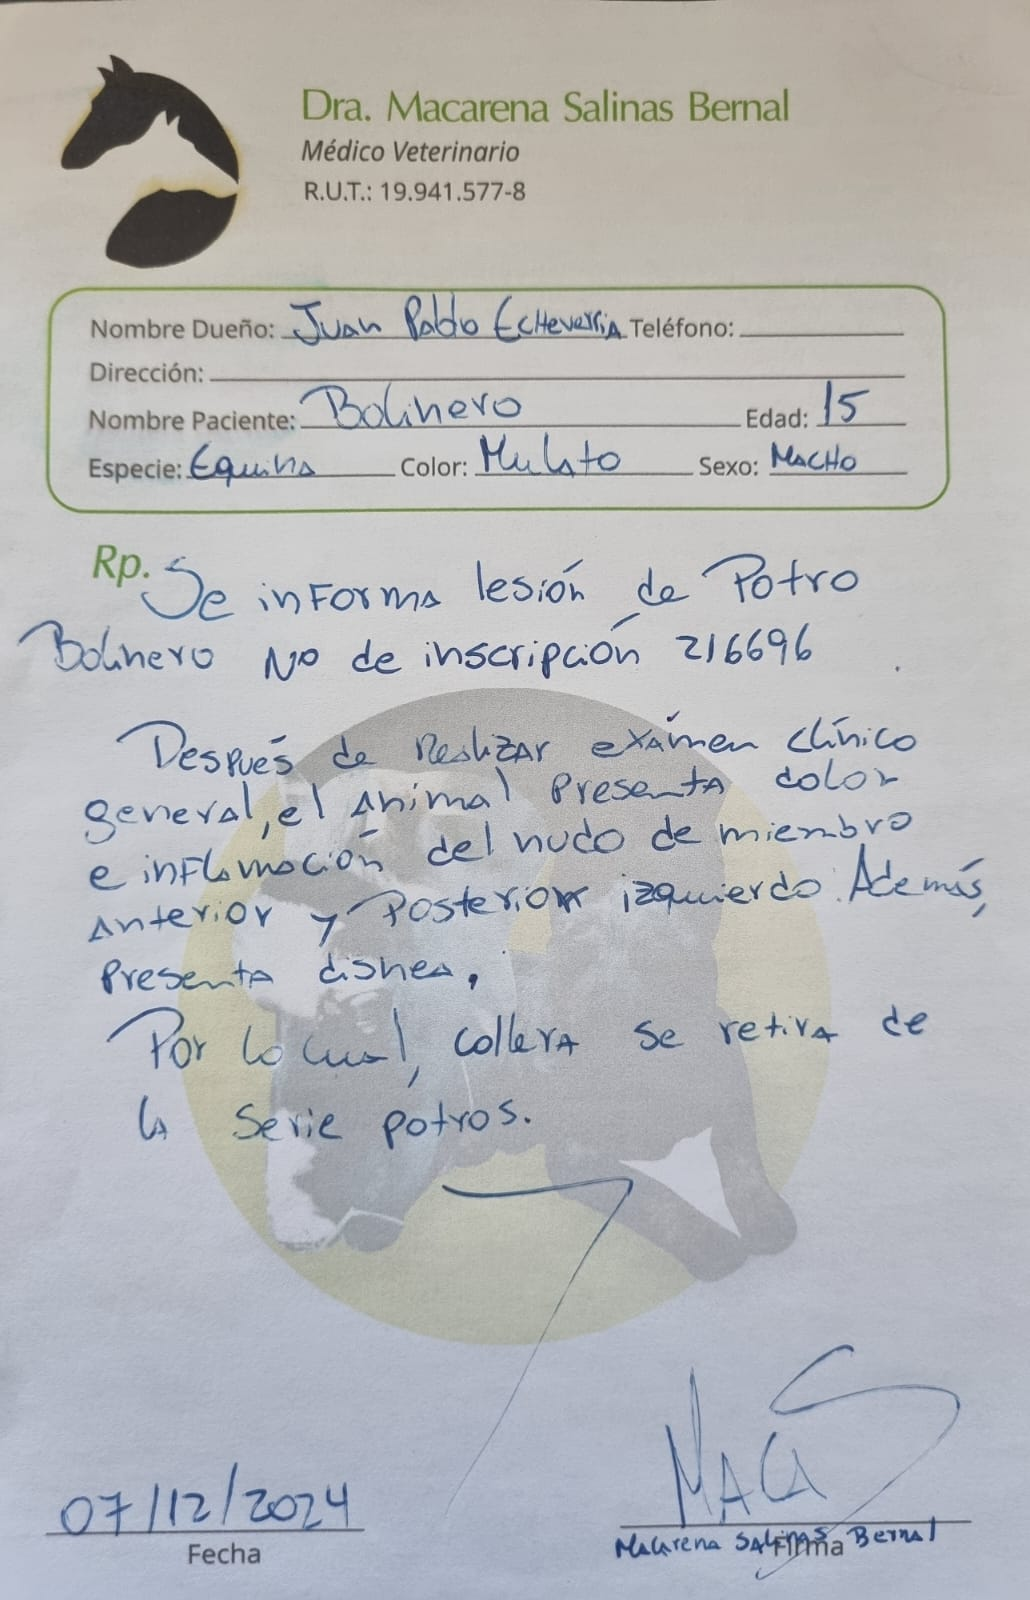 Dra. Macarena Salinas Bernal
Médico Veterinario
R.U.T.: 19.941.577-8
Nombre Dueño: Juan Pablo Echeverria Teléfono:
Dirección:
Nombre Paciente: Bolinero Edad: 15
Especie: Equina Color: Mulato Sexo: Macho
Rp. Se informa lesión de Potro
Bolinero No de inscripción 216696
Después de realizar exámen clínico
general, el animal presenta dolor
e inflamación del nudo de miembro
anterior y posterior izquierdo. Además,
presenta disnea.
Por lo cual, collera se retira de
la serie potros.
07/12/2024
Fecha
MACS
Macarena Salinas Bernal
Firma